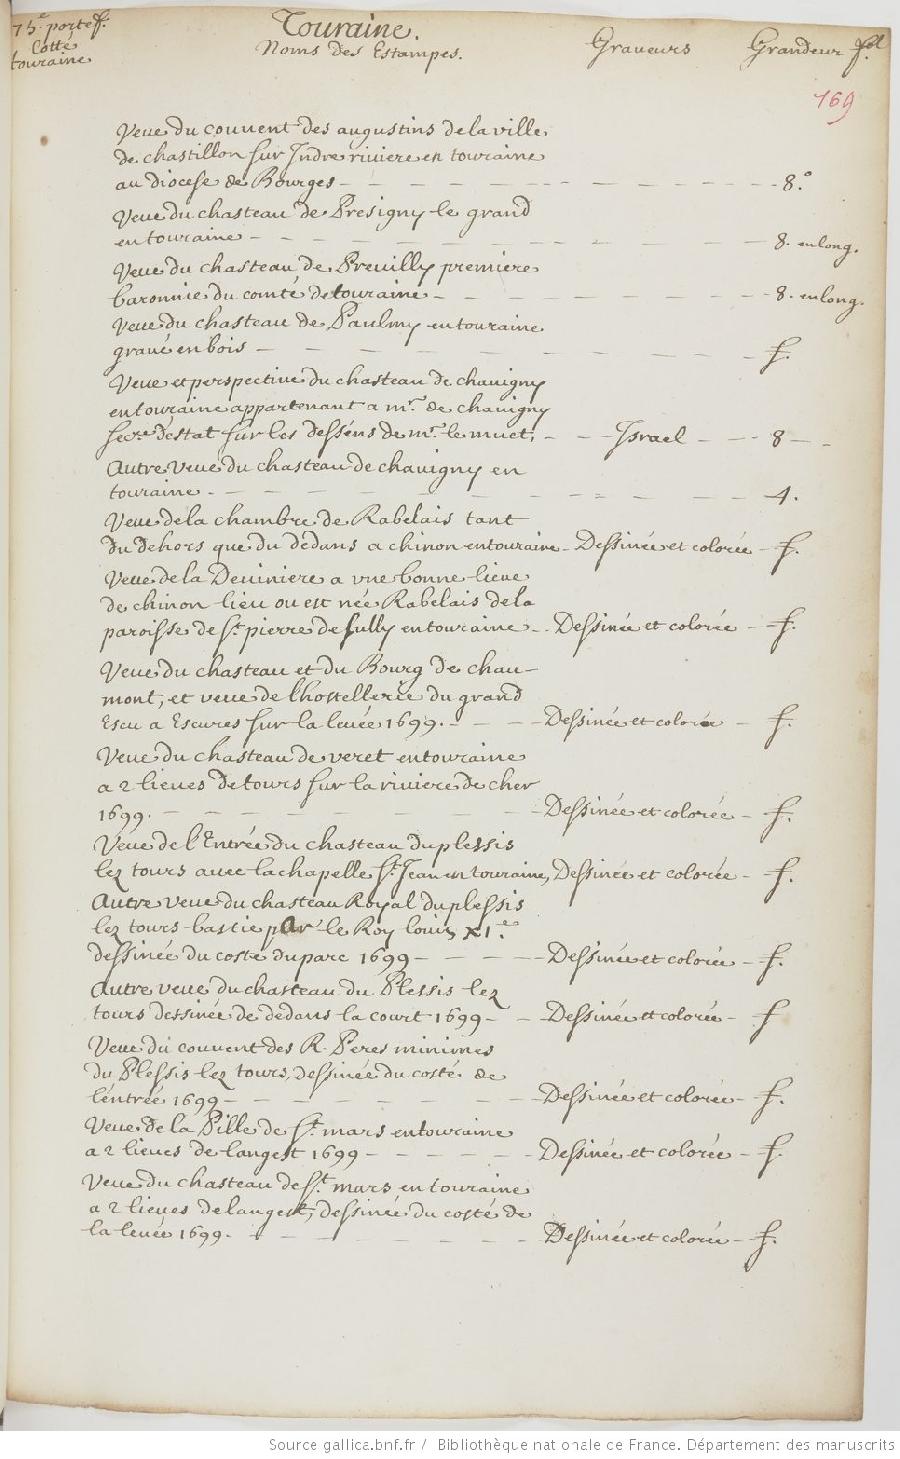 75.e portef. Touraine.
Cotté Noms des Estampes. Graveurs Grandeur fol.
touraine
169
Veue du couvent des augustins de la ville
de chastillon sur Indre riviere en touraine
au diocese de Bourges - 8.°
Veue du chasteau de Presigny le grand
en touraine - 8. en long.
Veue du chasteau de Preuilly premiere
baronnie du comté de touraine - 8. en long.
Veue du chasteau de Paulmy en touraine
gravé en bois - f.
Veue et perspective du chasteau de chavigny
en touraine appartenant a mr. de chavigny
secre. destat sur les desséns de mr. le muet. - Israel - 8 -
Autre veue du chasteau de chavigny en
touraine - 4.
Veue de la chambre de Rabelais tant
du dehors que du dedans a chinon en touraine - Dessinée et colorée - f.
Veue de la Deviniere a vne bonne lieue
de chinon lieu ou est née Rabelais de la
paroisse de St. pierre de fully en touraine - Dessinée et colorée - f.
Veue du chasteau et du Bourg de chau-
mont, et veue de lhostellerie du grand
Escu a Escures sur la levée 1699. - Dessinée et colorée - f.
Veue du chasteau de veret en touraine
a 2 lieues de tours sur la riviere de cher
1699. - Dessinée et colorée - f.
Veue de l'Entrée du chasteau du plessis
lez tours avec la chapelle St. Jean en touraine, Dessinée et colorée - f.
Autre veue du chasteau Royal du plessis
lez tours bastie par le Roy louis XI.e
dessinée du costé du parc 1699 - Dessinée et colorée - f.
Autre veue du chasteau du Plessis lez
tours dessinée de dedans la court 1699 - Dessinée et colorée - f
Veue du couvent des R. Peres minimes
du Plessis lez tours, dessinée du costé de
léntrée 1699 - Dessinée et colorée - f.
Veue de la Pille de St. mars en touraine
a 2 lieues de langest 1699 - Dessinée et colorée - f.
Veue du chasteau de St. mars en touraine
a 2 lieues de langest, dessinée du costé de
la levée 1699. - Dessinée et colorée - f.
Source gallica.bnf.fr / Bibliothèque nationale de France. Département des manuscrits